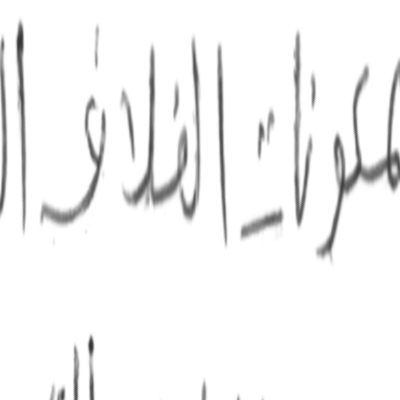 مكونات الغلاف ال